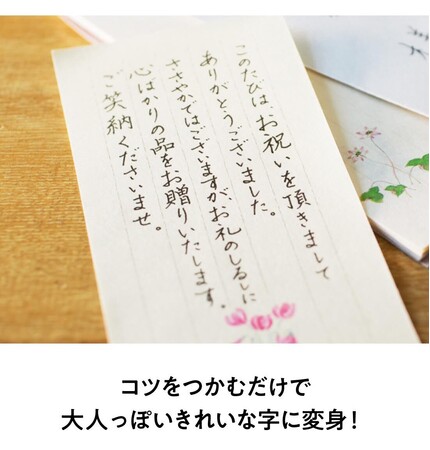 このたびは、お祝いを頂きまして
ありがとうございました。
ささやかではございますが、お礼のしるしに
心ばかりの品をお贈りいたします。
ご笑納くださいませ。
コツをつかむだけで
大人っぽいきれいな字に変身！